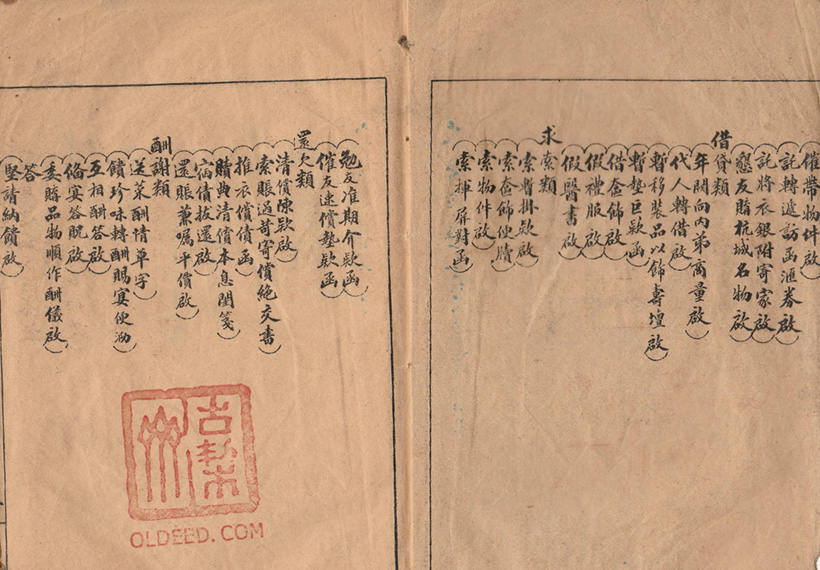 催帶物件啟
託轉遞訪函滙券啟
託將衣銀附寄家啟
懇友購杭城名物啟
借貸類
年關向內弟商量啟
代人轉借啟
暫移裝品以飾壽壇啟
暫墊巨欵函
借奩飾啟
假禮服啟
假醫書啟
求索類
索暫掛欵啟
索奩飾便牘
索物件啟
索揮屏對函
勉友准期介欵函
催友速償墊欵函
還欠類
清償陳欵啟
索賬過苛寄償絕交書
推衣償債函
贖典清償本息閨箋
宿債拔還啟
還賬兼囑平價啟
酬謝類
送菜酬情單字
饋珍味轉酬賜宴便泐
互相酬答啟
偹宴答脫啟
委購品物順作酬儀啟
答
堅請納饋啟
OLDEED.COM